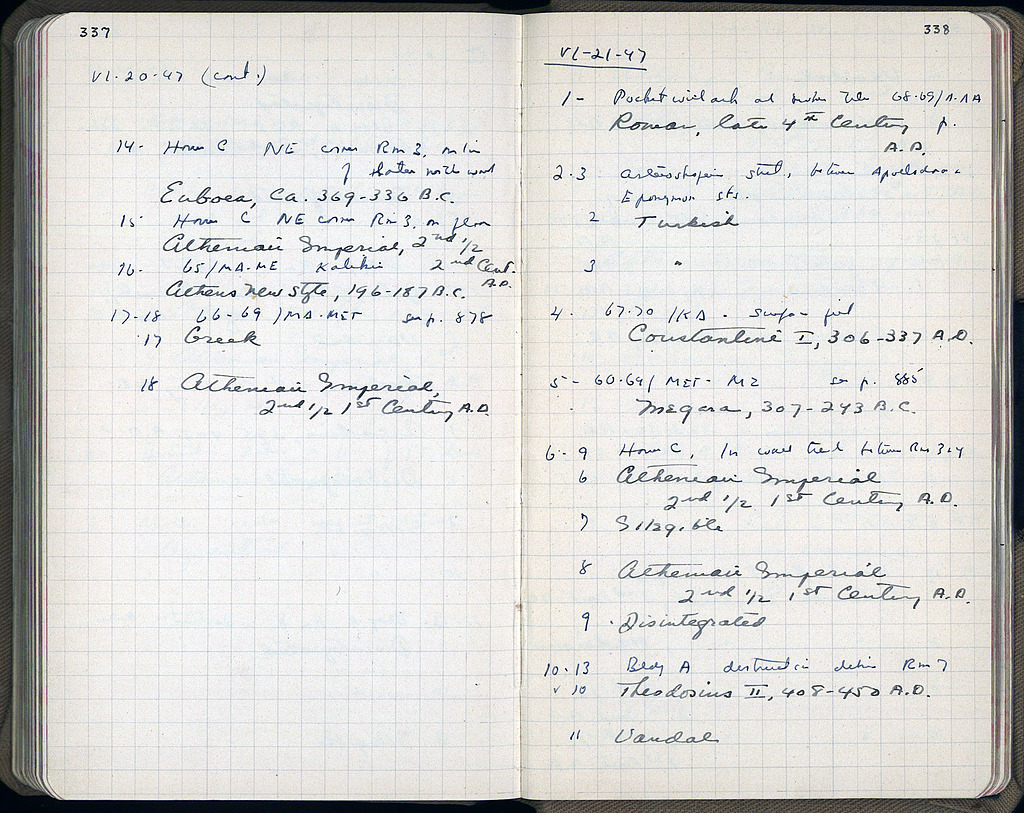 337
VI-20-47 (cont.)
14- House C NE corner Rm 3, in line
of north wall
Euboea, Ca. 369-336 B.C.
15 House C NE corner Rm 3, on floor
Athenian Imperial, 2nd 1/2
2nd Cent.
A.D.
16- 65/MA-ME
Athens New Style, 196-187 B.C.
17-18 66-69/MA-MET see p. 878
17 Greek
18 Athenian Imperial,
2nd 1/2 1st Century A.D.
338
VI-21-47
1- Pocket with ash at broken tile 68-69/
Roman, late 4th Century p.
A.D.
2-3 Areiosopagus street, between Apollodorou &
Eponymon sts.
2 Turkish
3 "
4- 67-70/KA - surface find
Constantine I, 306-337 A.D.
5- 60-64/MET-MZ see p. 885
Megara, 307-243 B.C.
6-9 House C, In wall trench between Rm 3 & 4
6 Athenian Imperial
2nd 1/2 1st Century A.D.
7 Illegible
8 Athenian Imperial
2nd 1/2 1st Century A.D.
9 Disintegrated
10-13 Bldg A destruction debris Rm 7
v 10 Theodosius II, 408-450 A.D.
11 Vandal